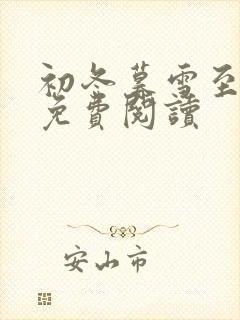 初冬暮雪至
免費閱讀
安山市